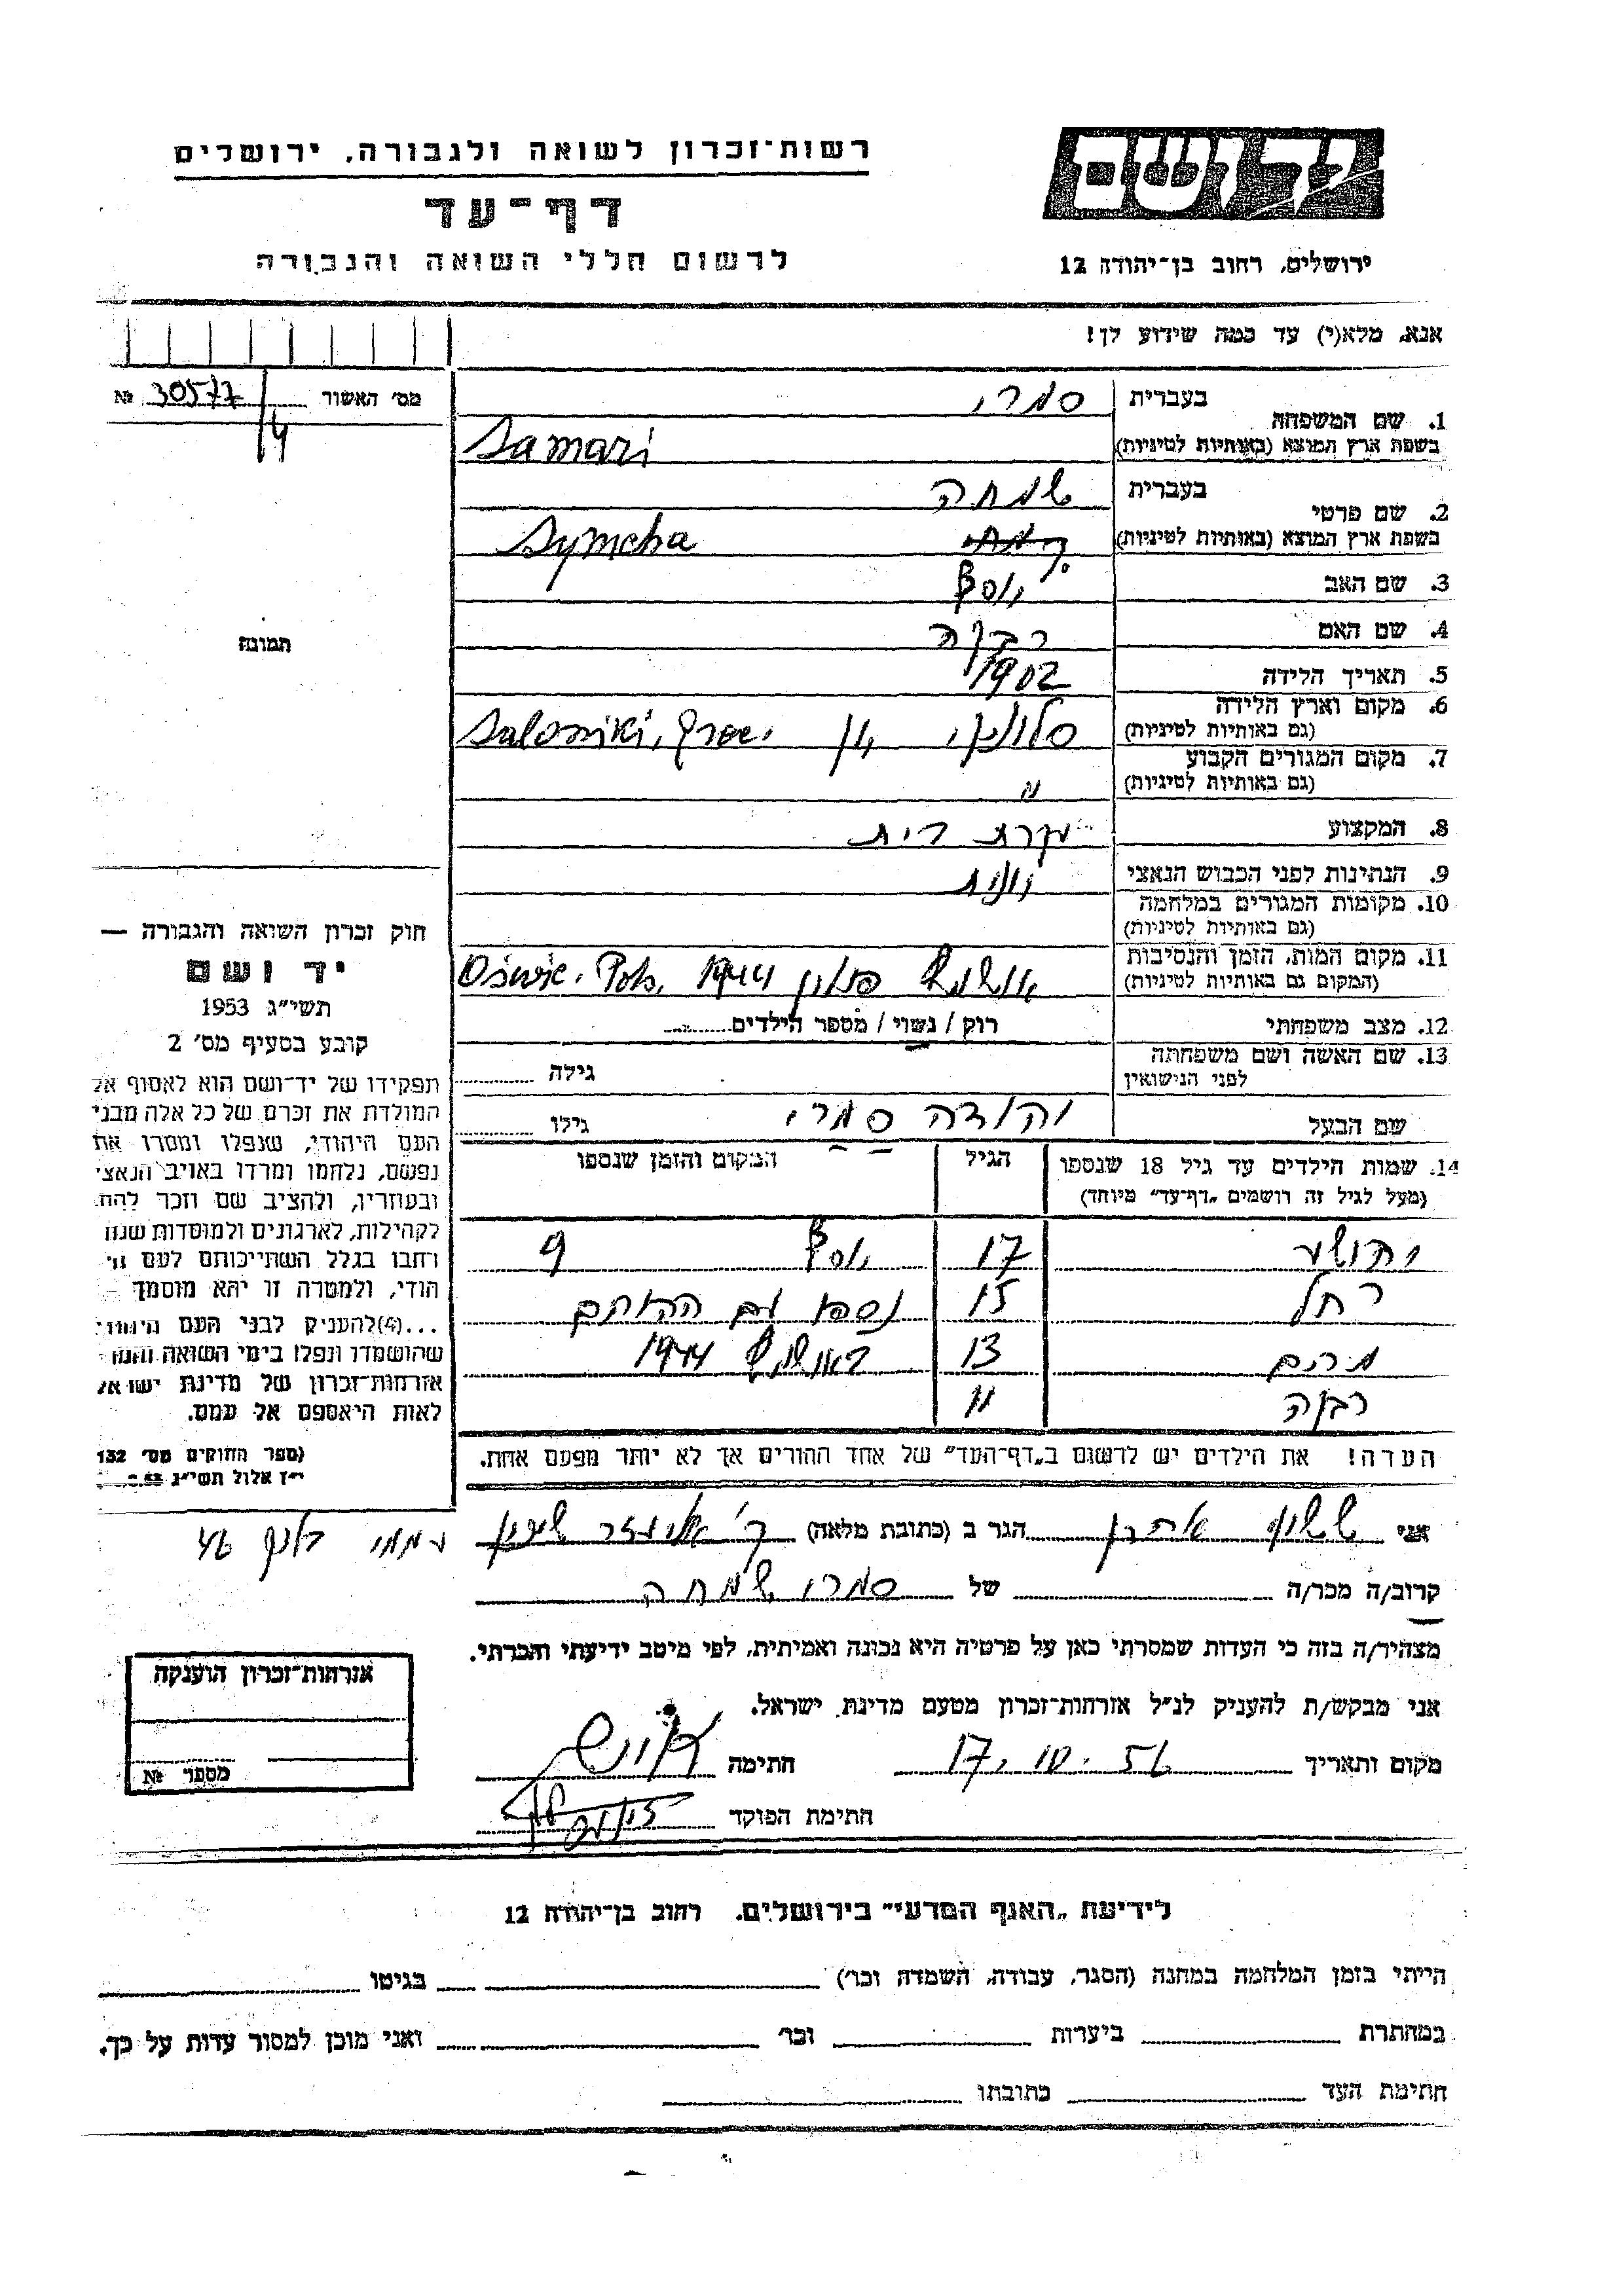 רשות־זכרון לשואה ולגבורה, ירושלים
יד ושם
דף־עד
לרשום חללי השואה והגבורה
ירושלים, רחוב בן־יהודה 12
אנא, מלא(י) עד כמה שידוע לך!
מס' האשור 30577/4 №
1. שם המשפחה
בעברית סמרי
בשפת ארץ המוצא (באותיות לטיניות) Samari
2. שם פרטי
בעברית שמחה
בשפת ארץ המוצא (באותיות לטיניות) Symcha
3. שם האב יוסף
4. שם האם רבקה
5. תאריך הלידה 1902
6. מקום וארץ הלידה סלוניקי, יון
(גם באותיות לטיניות) Saloniki,
7. מקום המגורים הקבוע
(גם באותיות לטיניות) "
8. המקצוע עקרת בית
9. הנתינות לפני הכבוש הנאצי יונית
10. מקומות המגורים במלחמה
(גם באותיות לטיניות)
11. מקום המות, הזמן והנסיבות אושויץ פולין 1944
(המקום גם באותיות לטיניות) Oświe. Pol.
12. מצב משפחתי רוק / נשוי / מספר הילדים
13. שם האשה ושם משפחתה
לפני הנישואין גילה
שם הבעל יהודה סמרי גילו
14. שמות הילדים עד גיל 18 שנספו הגיל המקום והזמן שנספו
(מעל לגיל זה רושמים „דף־עד" מיוחד)
יהושע 17 יוסף 9
רחל 15 נספו עם ההורים
מרים 13 באושויץ 1944
רבקה 11
הערה! את הילדים יש לרשום ב„דף־העד" של אחד ההורים אך לא יותר מפעם אחת.
תמונה
חוק זכרון השואה והגבורה —
יד ושם
תשי"ג 1953
קובע בסעיף מס' 2
תפקידו של יד־ושם הוא לאסוף אל
המולדת את זכרם של כל אלה מבני
העם היהודי, שנפלו ומסרו את
נפשם, נלחמו ומרדו באויב הנאצי
ובעוזריו, ולהציב שם וזכר להם,
לקהילות, לארגונים ולמוסדות שנח
רחבו בגלל השתייכותם לעם הי
הודי, ולמטרה זו יהא מוסמך —
...(4)להעניק לבני העם היהודי
שהושמדו ונפלו בימי השואה והמרי
אזרחות־זכרון של מדינת ישראל
לאות היאספם אל עמם.
(ספר החוקים מס' 132
י"ז אלול תשי"ג
אני ששון אהרן הגר ב (כתובת מלאה) ק' אליעזר שיכון
ממי בלוק 46
קרוב/ה מכר/ה של סמרי שמחה
מצהיר/ה בזה כי העדות שמסרתי כאן על פרטיה היא נכונה ואמיתית, לפי מיטב ידיעתי והכרתי.
אני מבקש/ת להעניק לנ"ל אזרחות־זכרון מטעם מדינת ישראל.
מקום ותאריך 17.10.56 חתימה
חתימת הפוקד
אזרחות־זכרון הוענקה
מספר №
לידיעת „האגף המדעי" בירושלים, רחוב בן־יהודה 12
הייתי בזמן המלחמה במחנה (הסגר, עבודה, השמדה וכו') בגיטו
במחתרת ביערות וכו' ואני מוכן למסור עדות על כך.
חתימת העד כתובתו